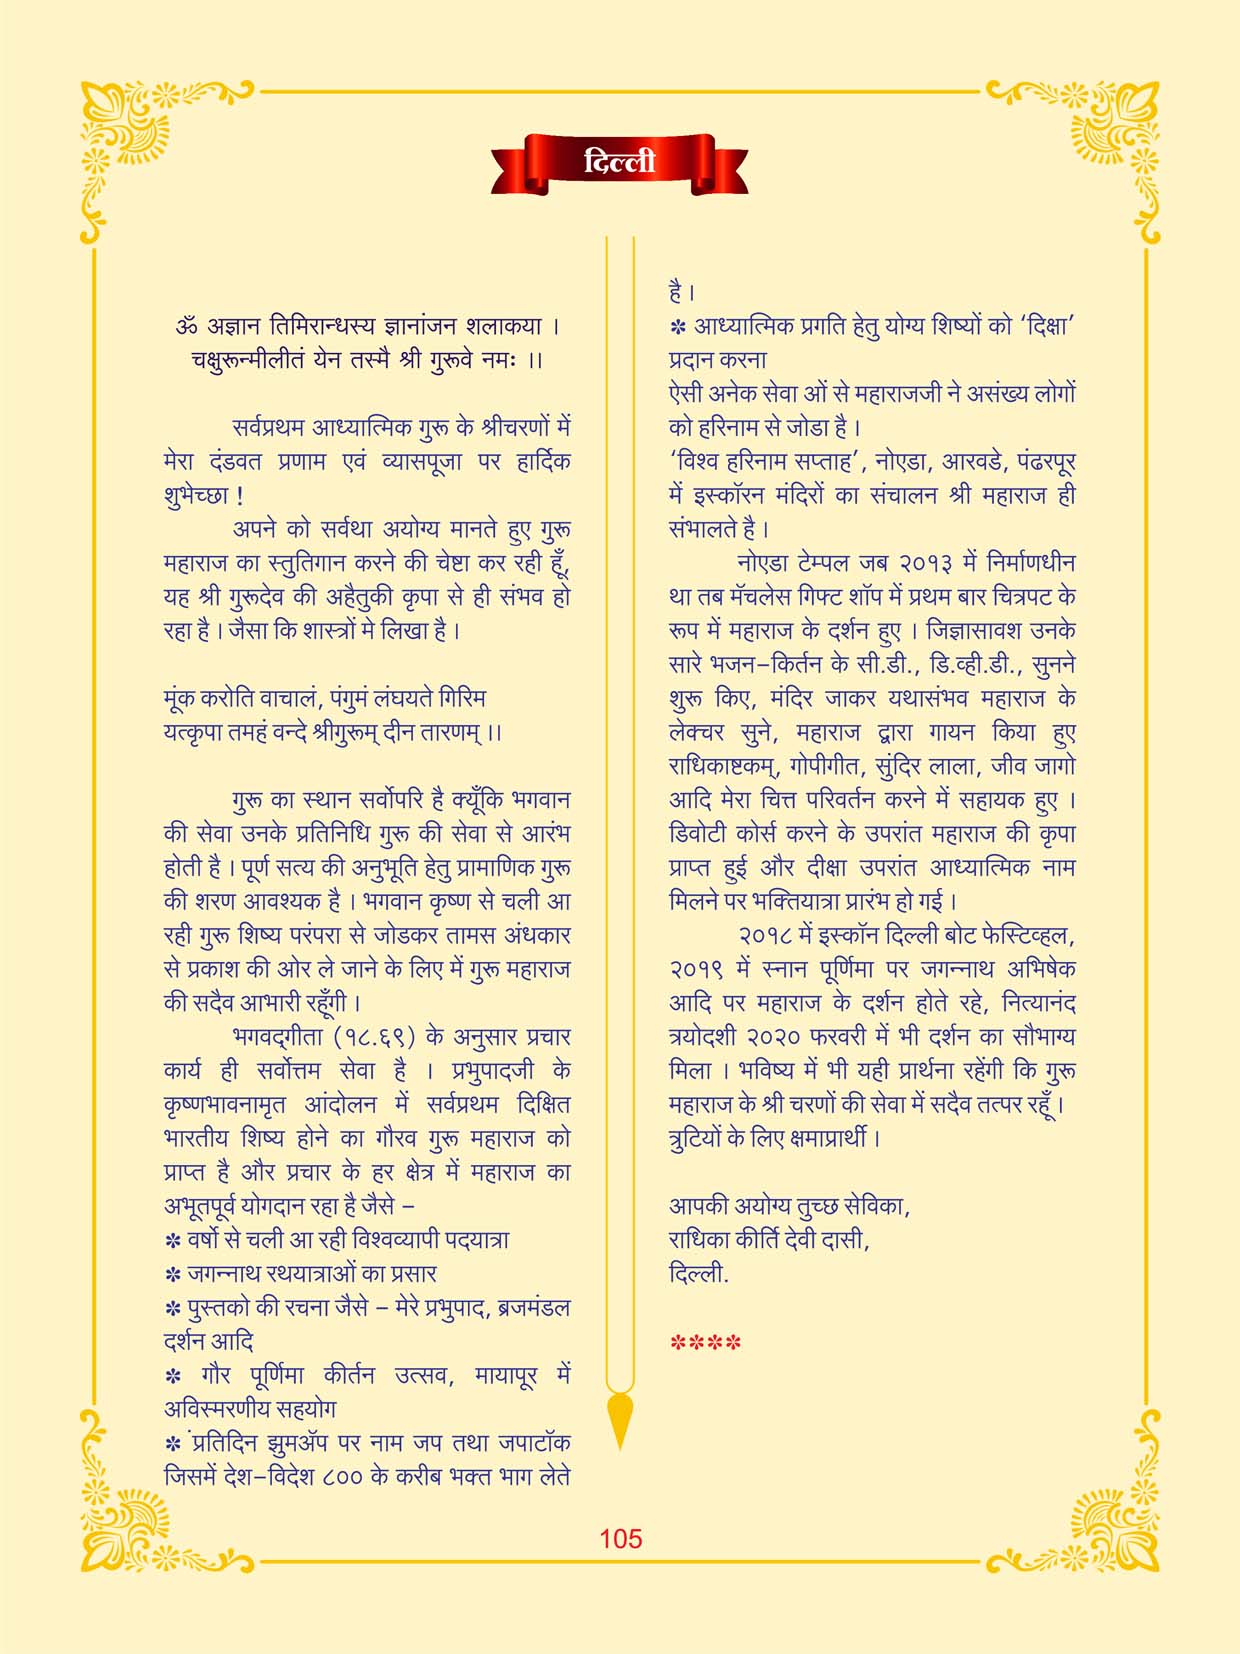 दिल्ली
ॐ अज्ञान तिमिरान्धस्य ज्ञानांजन शलाकया ।
चक्षुरून्मीलीतं येन तस्मै श्री गुरूवे नमः ।।
सर्वप्रथम आध्यात्मिक गुरू के श्रीचरणों में
मेरा दंडवत प्रणाम एवं व्यासपूजा पर हार्दिक
शुभेच्छा !
अपने को सर्वथा अयोग्य मानते हुए गुरू
महाराज का स्तुतिगान करने की चेष्टा कर रही हूँ,
यह श्री गुरूदेव की अहैतुकी कृपा से ही संभव हो
रहा है । जैसा कि शास्त्रों मे लिखा है ।
मूंक करोति वाचालं, पंगुमं लंघयते गिरिम
यत्कृपा तमहं वन्दे श्रीगुरूम् दीन तारणम् ।।
गुरू का स्थान सर्वोपरि है क्यूँकि भगवान
की सेवा उनके प्रतिनिधि गुरू की सेवा से आरंभ
होती है । पूर्ण सत्य की अनुभूति हेतु प्रामाणिक गुरू
की शरण आवश्यक है । भगवान कृष्ण से चली आ
रही गुरू शिष्य परंपरा से जोडकर तामस अंधकार
से प्रकाश की ओर ले जाने के लिए में गुरू महाराज
की सदैव आभारी रहूँगी ।
भगवद्‌गीता (१८.६९) के अनुसार प्रचार
कार्य ही सर्वोत्तम सेवा है । प्रभुपादजी के
कृष्णभावनामृत आंदोलन में सर्वप्रथम दिक्षित
भारतीय शिष्य होने का गौरव गुरू महाराज को
प्राप्त है और प्रचार के हर क्षेत्र में महाराज का
अभूतपूर्व योगदान रहा है जैसे –
✽ वर्षो से चली आ रही विश्वव्यापी पदयात्रा
✽ जगन्नाथ रथयात्राओं का प्रसार
✽ पुस्तको की रचना जैसे – मेरे प्रभुपाद, ब्रजमंडल
दर्शन आदि
✽ गौर पूर्णिमा कीर्तन उत्सव, मायापूर में
अविस्मरणीय सहयोग
✽ ंप्रतिदिन झुमॲप पर नाम जप तथा जपाटॉक
जिसमें देश–विदेश ८०० के करीब भक्त भाग लेते
है ।
✽ आध्यात्मिक प्रगति हेतु योग्य शिष्यों को ‘दिक्षा’
प्रदान करना
ऐसी अनेक सेवा ओं से महाराजजी ने असंख्य लोगों
को हरिनाम से जोडा है ।
‘विश्व हरिनाम सप्ताह’, नोएडा, आरवडे, पंढरपूर
में इस्कॉरन मंदिरों का संचालन श्री महाराज ही
संभालते है ।
नोएडा टेम्पल जब २०१३ में निर्माणधीन
था तब मॅचलेस गिफ्ट शॉप में प्रथम बार चित्रपट के
रूप में महाराज के दर्शन हुए । जिज्ञासावश उनके
सारे भजन–किर्तन के सी.डी., डि.व्ही.डी., सुनने
शुरू किए, मंदिर जाकर यथासंभव महाराज के
लेक्चर सुने, महाराज द्वारा गायन किया हुए
राधिकाष्टकम्, गोपीगीत, सुंदिर लाला, जीव जागो
आदि मेरा चित्त परिवर्तन करने में सहायक हुए ।
डिवोटी कोर्स करने के उपरांत महाराज की कृपा
प्राप्त हुई और दीक्षा उपरांत आध्यात्मिक नाम
मिलने पर भक्तियात्रा प्रारंभ हो गई ।
२०१८ में इस्कॉन दिल्ली बोट फेस्टिव्हल,
२०१९ में स्नान पूर्णिमा पर जगन्नाथ अभिषेक
आदि पर महाराज के दर्शन होते रहे, नित्यानंद
त्रयोदशी २०२० फरवरी में भी दर्शन का सौभाग्य
मिला । भविष्य में भी यही प्रार्थना रहेंगी कि गुरू
महाराज के श्री चरणों की सेवा में सदैव तत्पर रहूँ ।
त्रुटियों के लिए क्षमाप्रार्थी ।
आपकी अयोग्य तुच्छ सेविका,
राधिका कीर्ति देवी दासी,
दिल्ली.
✽✽✽✽
105